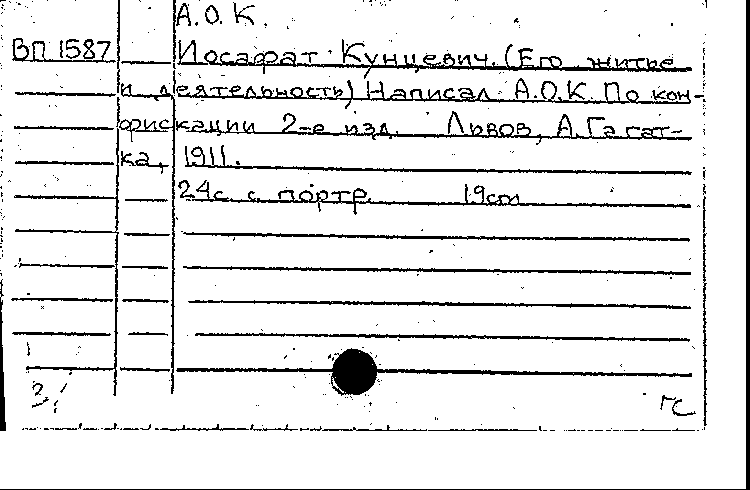 А.О.К.
ВП 1587 Иосафат Кунцевич. (Его житье
и деятельность) Написал А.О.К. По кон-
фискации 2-е изд. Львов, А. Гагат-
ка, 1911.
24с. с портр. 19cm
гс